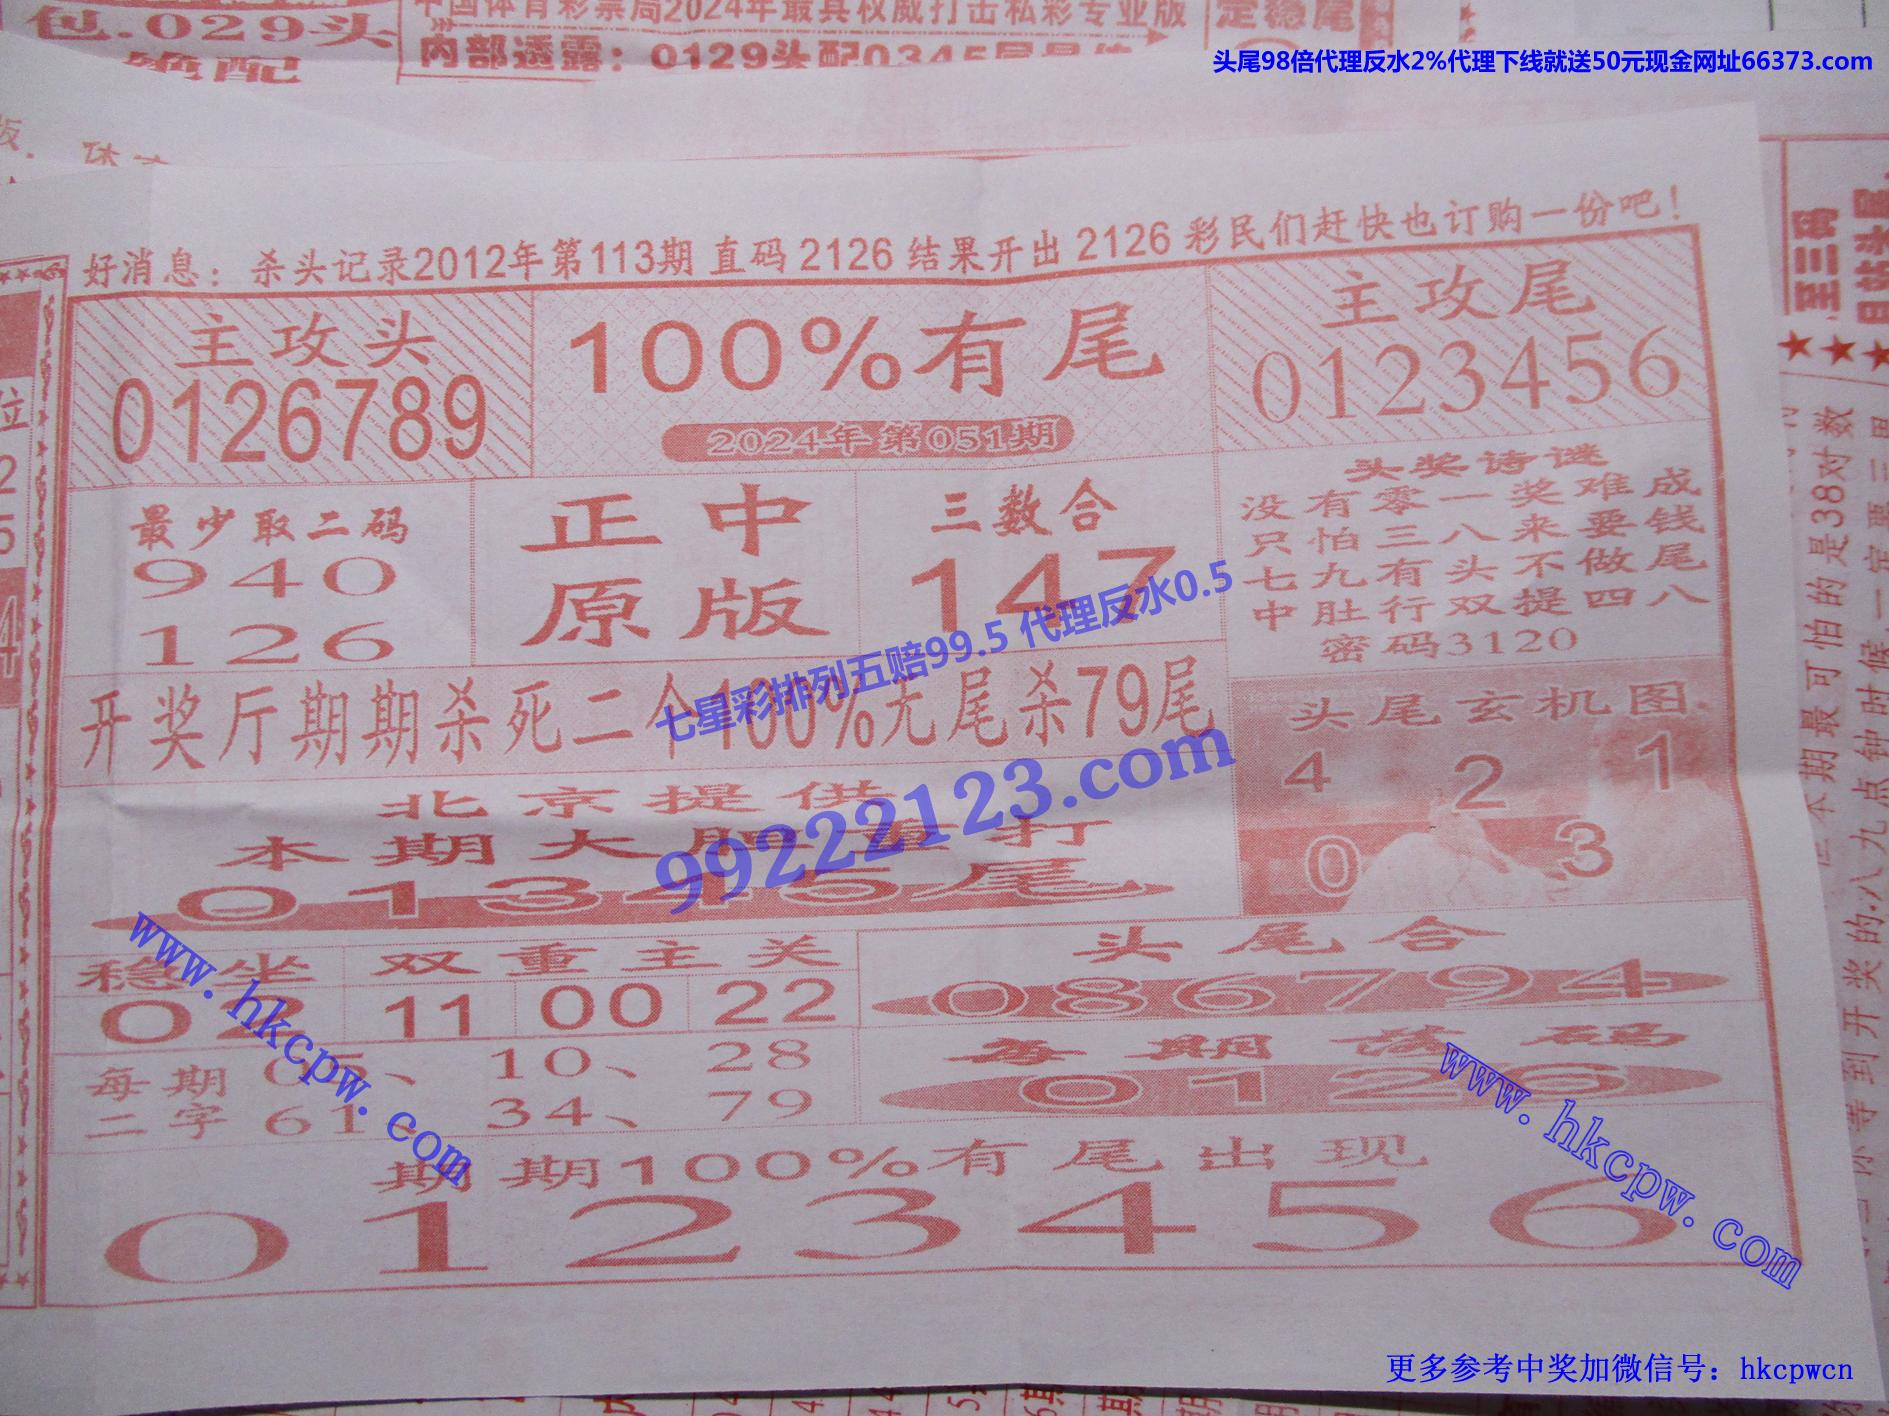 包.029头
绝配
中国体育彩票局2024年最具权威打击私彩专业版
内部透露：0129头配0345尾
定稳尾
头尾98倍代理反水2%代理下线就送50元现金网址66373.com
好消息：杀头记录2012年第113期 直码 2126 结果开出 2126 彩民们赶快也订购一份吧！
主攻头
0126789
100%有尾
2024年第051期
主攻尾
0123456
最少取二码
940
126
正中
原版
三数合
147
头奖诗谜
没有零一奖难成
只怕三八来要钱
七九有头不做尾
中肚行双提四八
密码3120
七星彩排列五赔99.5 代理反水0.5
开奖厅期期杀死二个100%无尾杀79尾
99222123.com
头尾玄机图
4 2 1
0 3
北京提供
本期大胆 打
01345尾
稳坐
02
双重主关
11 00 22
头尾合
086794
每期
二字
05、 10、 28
61、 34、 79
每期 码
0126
www.hkcpw.com
www.hkcpw.com
期期100%有尾出现
0123456
至三码
本期最可怕的是38对数
更多参考中奖加微信号：hkcpwcn